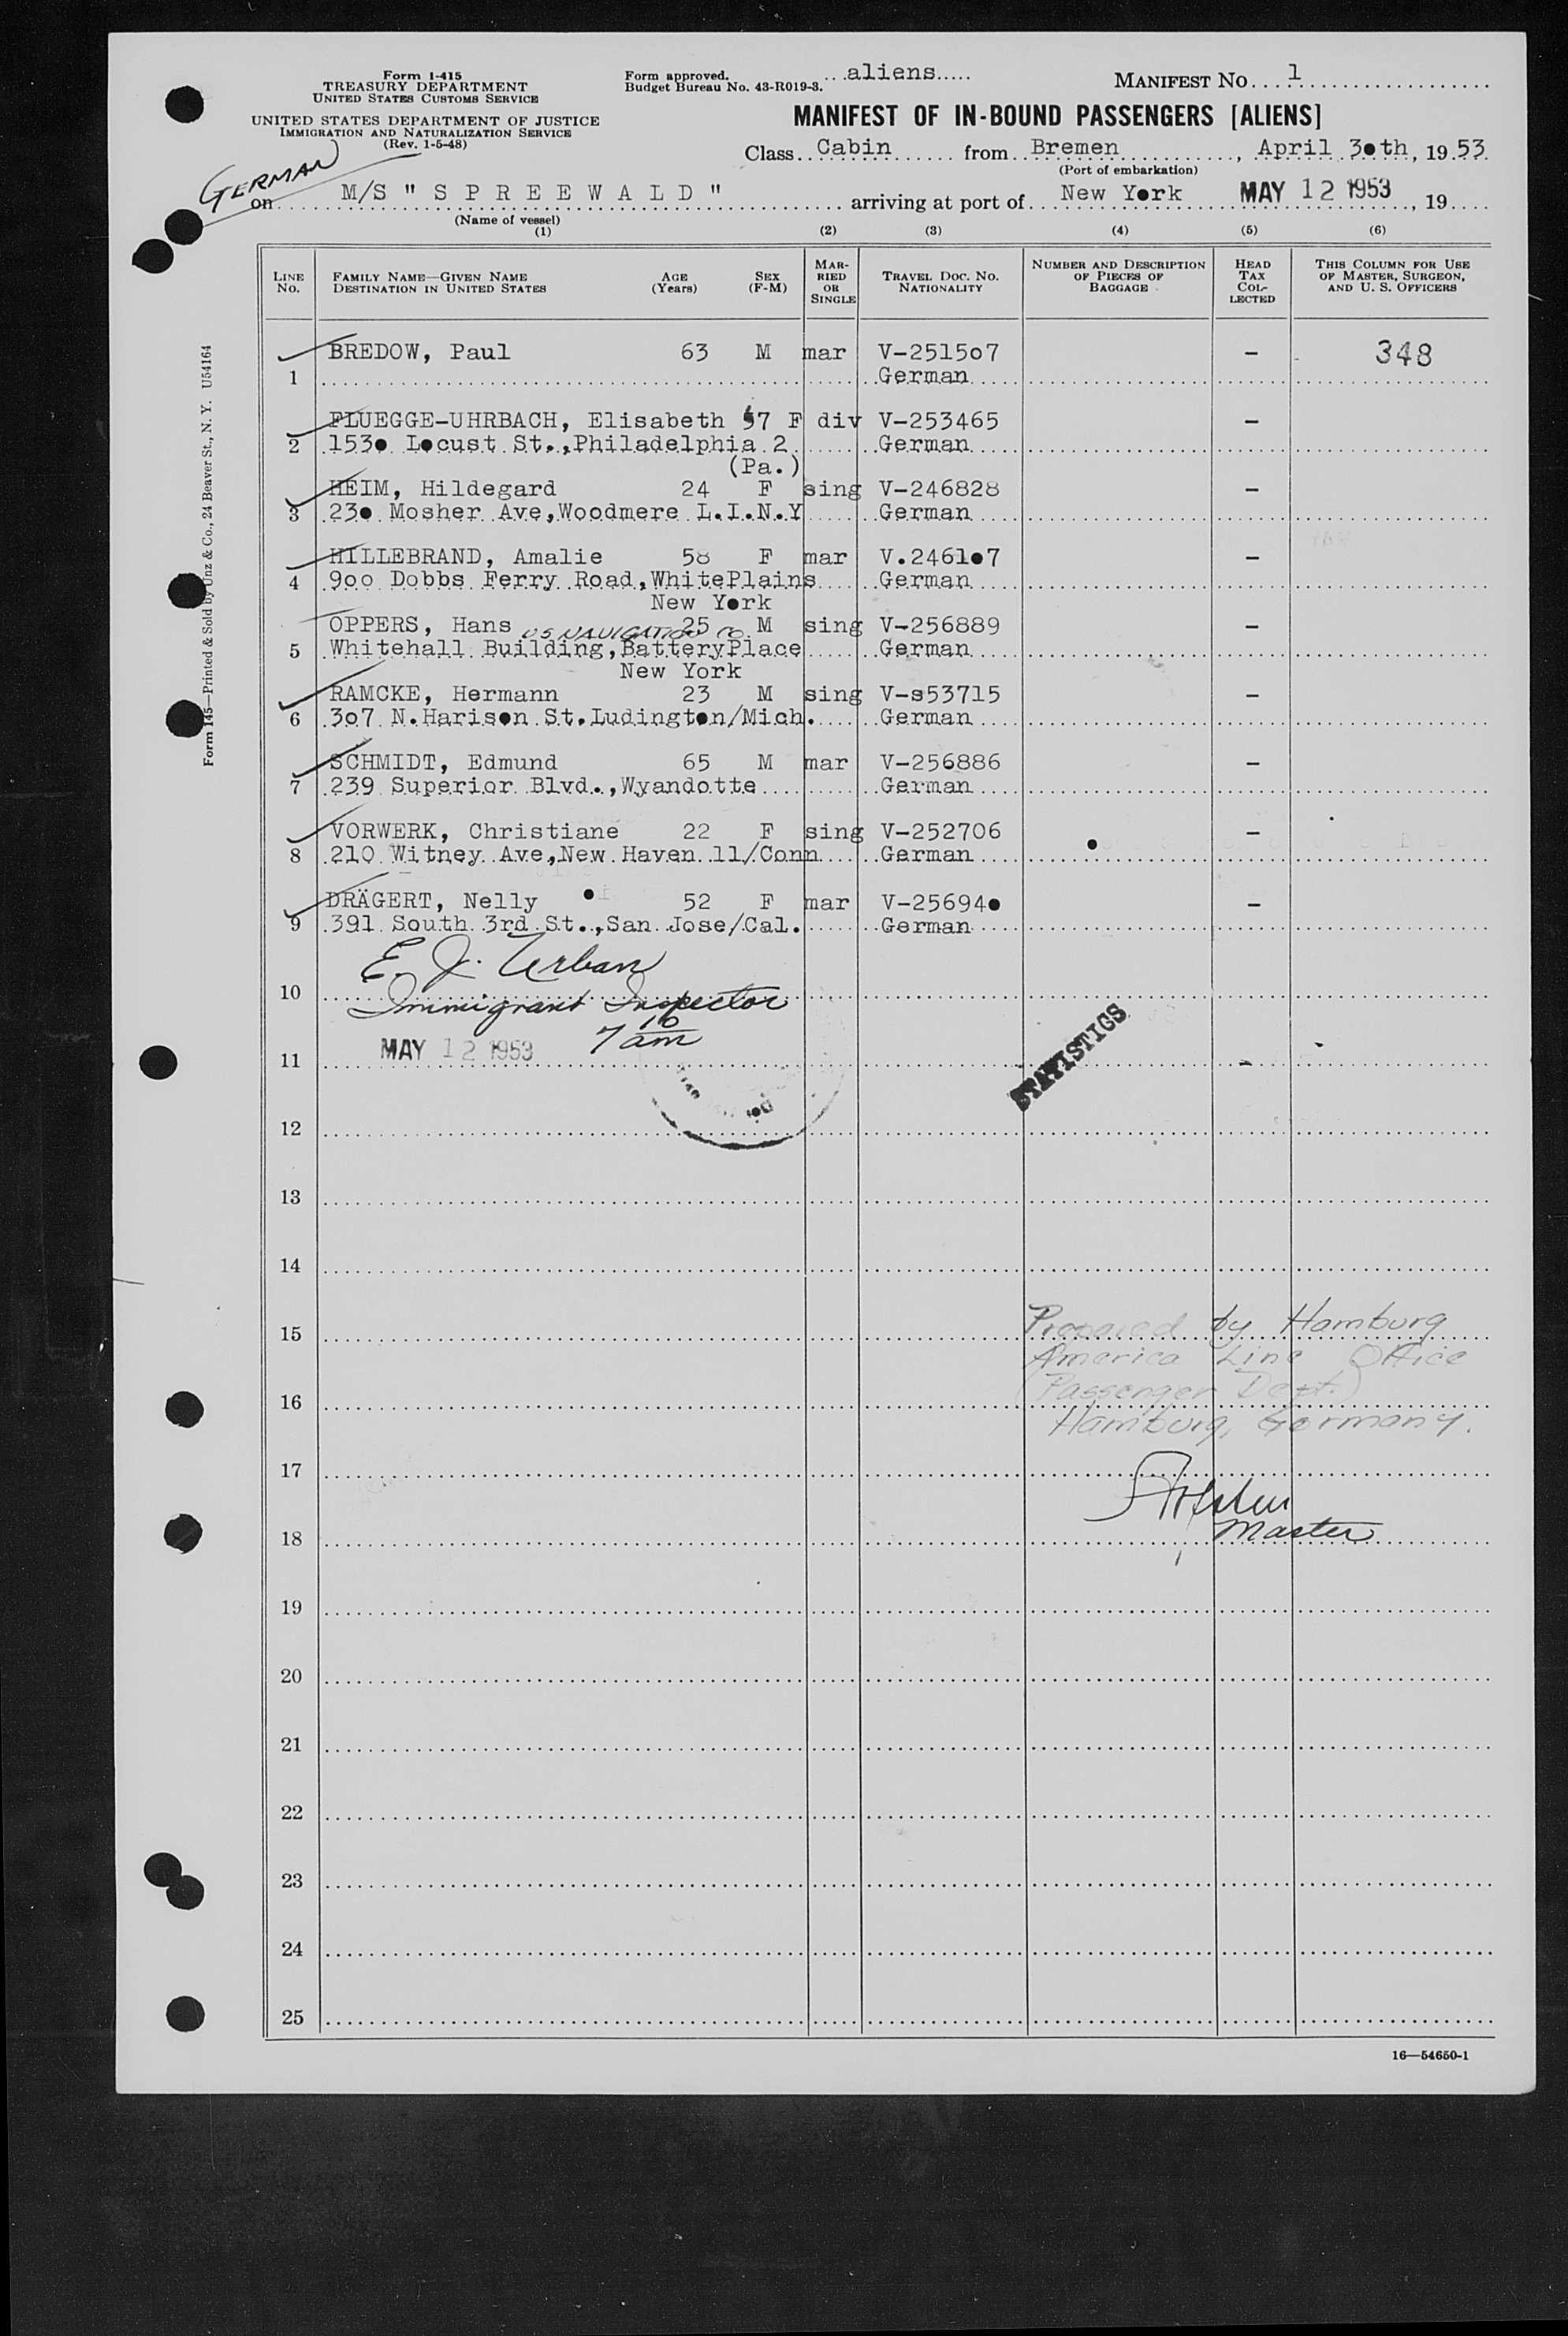 Form I-415
TREASURY DEPARTMENT
UNITED STATES CUSTOMS SERVICE
UNITED STATES DEPARTMENT OF JUSTICE
IMMIGRATION AND NATURALIZATION SERVICE
(Rev. 1-5-48)
Form approved.
Budget Bureau No. 43-R019-3.
aliens
MANIFEST NO. 1
MANIFEST OF IN-BOUND PASSENGERS [ALIENS]
Class Cabin from Bremen, April 30th, 1953
(Port of embarkation)
GERMAN
on M/S " S P R E E W A L D " arriving at port of New York MAY 12 1953, 19
(Name of vessel)
(1) (2) (3) (4) (5) (6)
LINE NO. FAMILY NAME—GIVEN NAME DESTINATION IN UNITED STATES AGE (Years) SEX (F-M) MARRIED OR SINGLE TRAVEL DOC. NO. NATIONALITY NUMBER AND DESCRIPTION OF PIECES OF BAGGAGE HEAD TAX COLLECTED THIS COLUMN FOR USE OF MASTER, SURGEON, AND U. S. OFFICERS
BREDOW, Paul 63 M mar V-251507 – 348
1 German
FLUEGGE-UHRBACH, Elisabeth 57 F div V-253465 –
2 1530 Locust St.,Philadelphia 2 German
(Pa.)
HEIM, Hildegard 24 F sing V-246828 –
3 230 Mosher Ave,Woodmere L.I.N.Y German
HILLEBRAND, Amalie 58 F mar V.246107 –
4 900 Dobbs Ferry Road,WhitePlains German
New York
OPPERS, Hans 25 M sing V-256889 –
US NAVIGATION CO
5 Whitehall Building,BatteryPlace German
New York
RAMCKE, Hermann 23 M sing V-s53715 –
6 307 N.Harison St.Ludington/Mich. German
SCHMIDT, Edmund 65 M mar V-256886 –
7 239 Superior Blvd.,Wyandotte German
VORWERK, Christiane 22 F sing V-252706 –
8 210 Witney Ave,New Haven 11/Conn German
DRÄGERT, Nelly 52 F mar V-256940 –
9 391 South 3rd St.,San Jose/Cal. German
E. J. Urban
10 Immigrant Inspector
7 10 am
MAY 12 1953
11
STATISTICS
12
13
14
15 Prepared by Hamburg
America Line Office
16 (Passenger Dept.)
Hamburg, Germany.
17
Master
18
19
20
21
22
23
24
25
16—54650-1
Form 145—Printed & Sold by Unz & Co., 24 Beaver St., N. Y. U54164